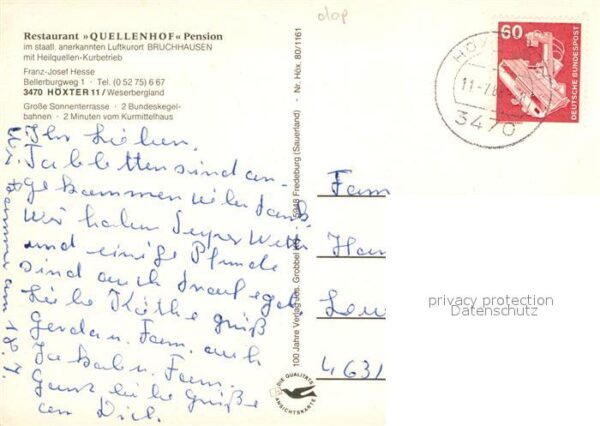 Restaurant »QUELLENHOF« Pension
im staatl. anerkannten Luftkurort BRUCHHAUSEN
mit Heilquellen-Kurbetrieb
Franz-Josef Hesse
Bellerburgweg 1 · Tel. (0 52 75) 6 67
3470 HÖXTER 11 / Weserbergland
Große Sonnenterrasse · 2 Bundeskegel-
bahnen · 2 Minuten vom Kurmittelhaus
Ihr Lieben.
Tabletten sind an-
gekommen vielen Dank
wir haben Super Wetter
und einige Pfunde
sind auch drauf egal
Liebe Käthe grüß
Gerda u. Fam. auch
Fam.
Ganz liebe Grüße
an Dich.
am 18.7.
100 Jahre Verlag Jos. Grobbel KG · 5948 Fredeburg (Sauerland) · Nr. Höx. 80/1161
DIE QUALITÄTS
ANSICHTSKARTE
60
DEUTSCHE BUNDESPOST
3470
Fam
4631
privacy protection
Datenschutz